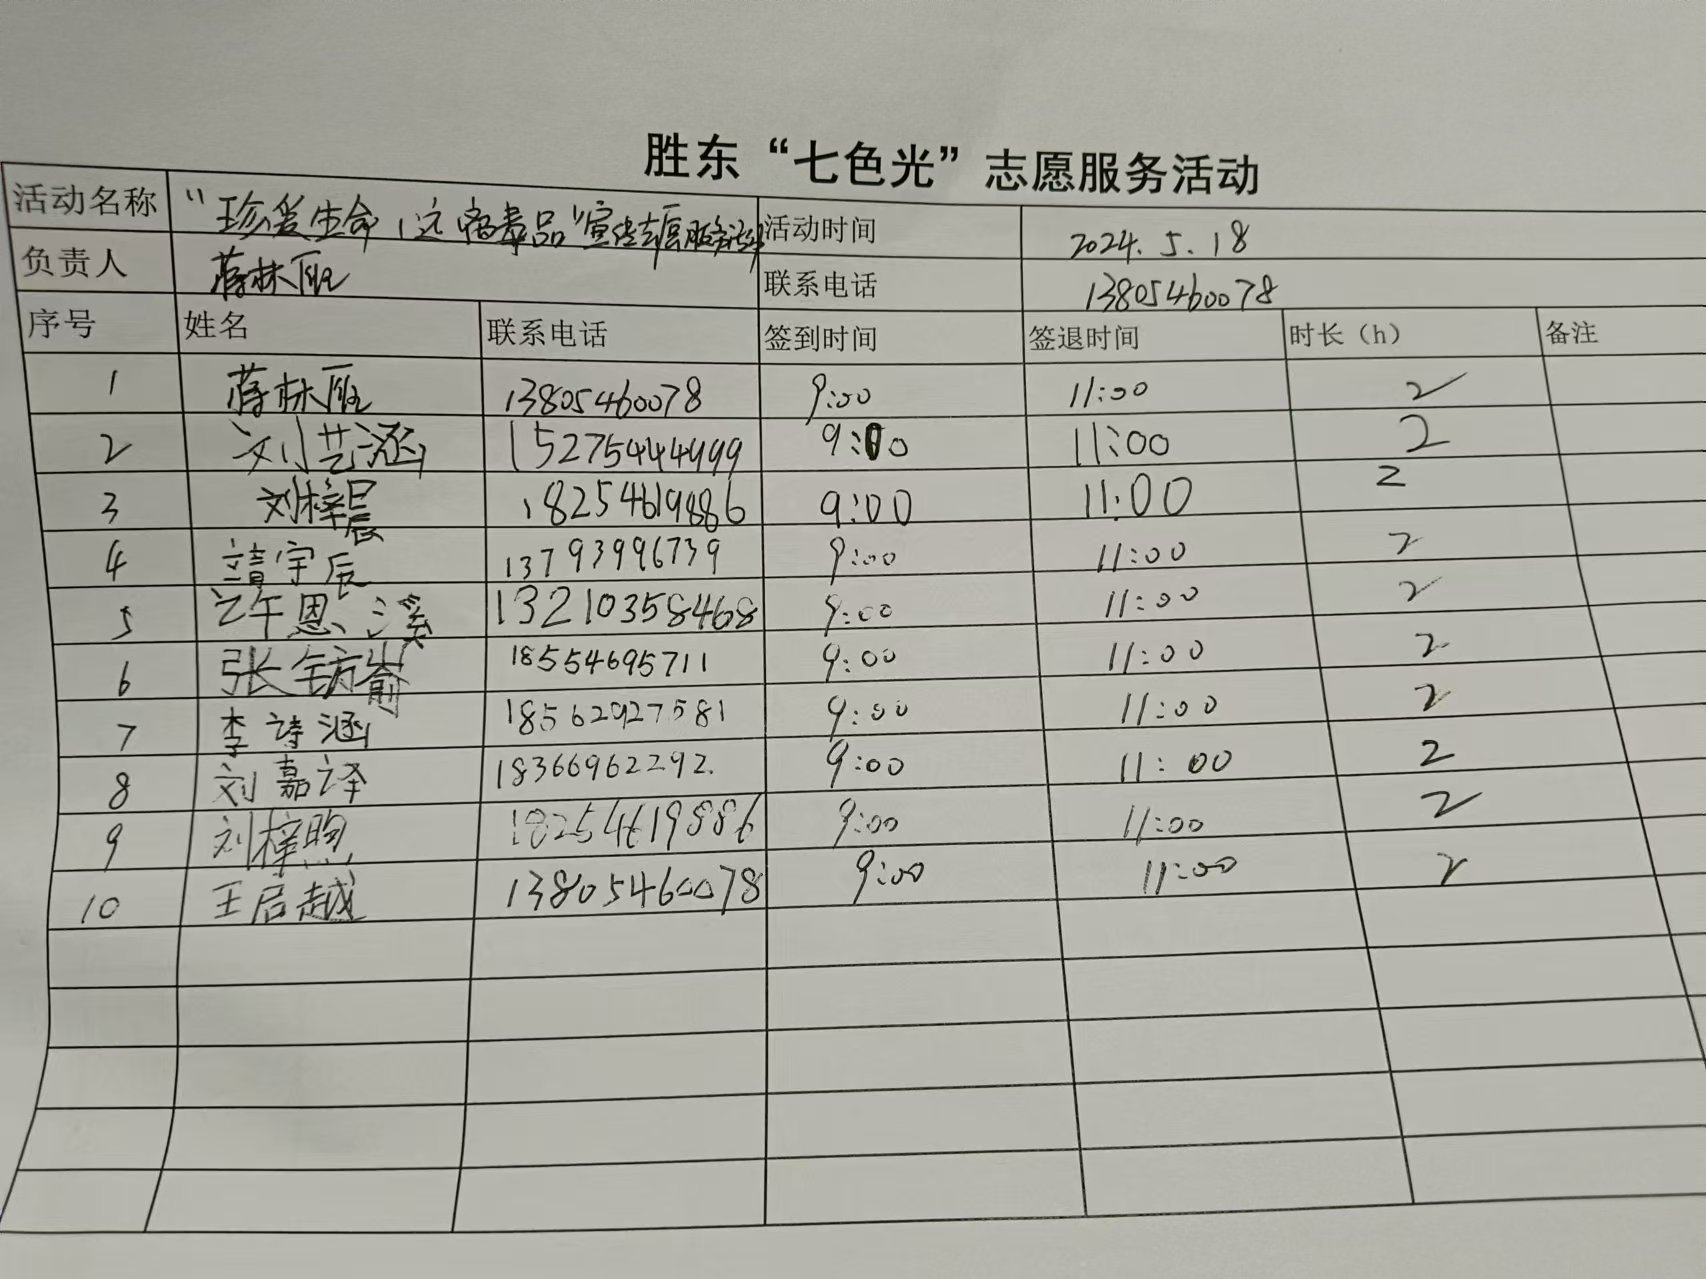 胜东“七色光”志愿服务活动
活动名称 “珍爱生命,远离毒品”宣传志愿服务活动 活动时间 2024.5.18
负责人 蒋林雁 联系电话 13805460078
序号 姓名 联系电话 签到时间 签退时间 时长(h) 备注
1 蒋林雁 13805460078 9:00 11:00 2
2 刘艺涵 15275444999 9:00 11:00 2
3 刘梓晨 18254619886 9:00 11:00 2
4 靖宇辰 13793996739 9:00 11:00 2
5 许恩溪 13210358468 9:00 11:00 2
6 张钫崳 18554695711 9:00 11:00 2
7 李诗涵 18562927581 9:00 11:00 2
8 刘嘉译 18366962292. 9:00 11:00 2
9 刘梓煦 18254619886 9:00 11:00 2
10 王启越 13805460078 9:00 11:00 2